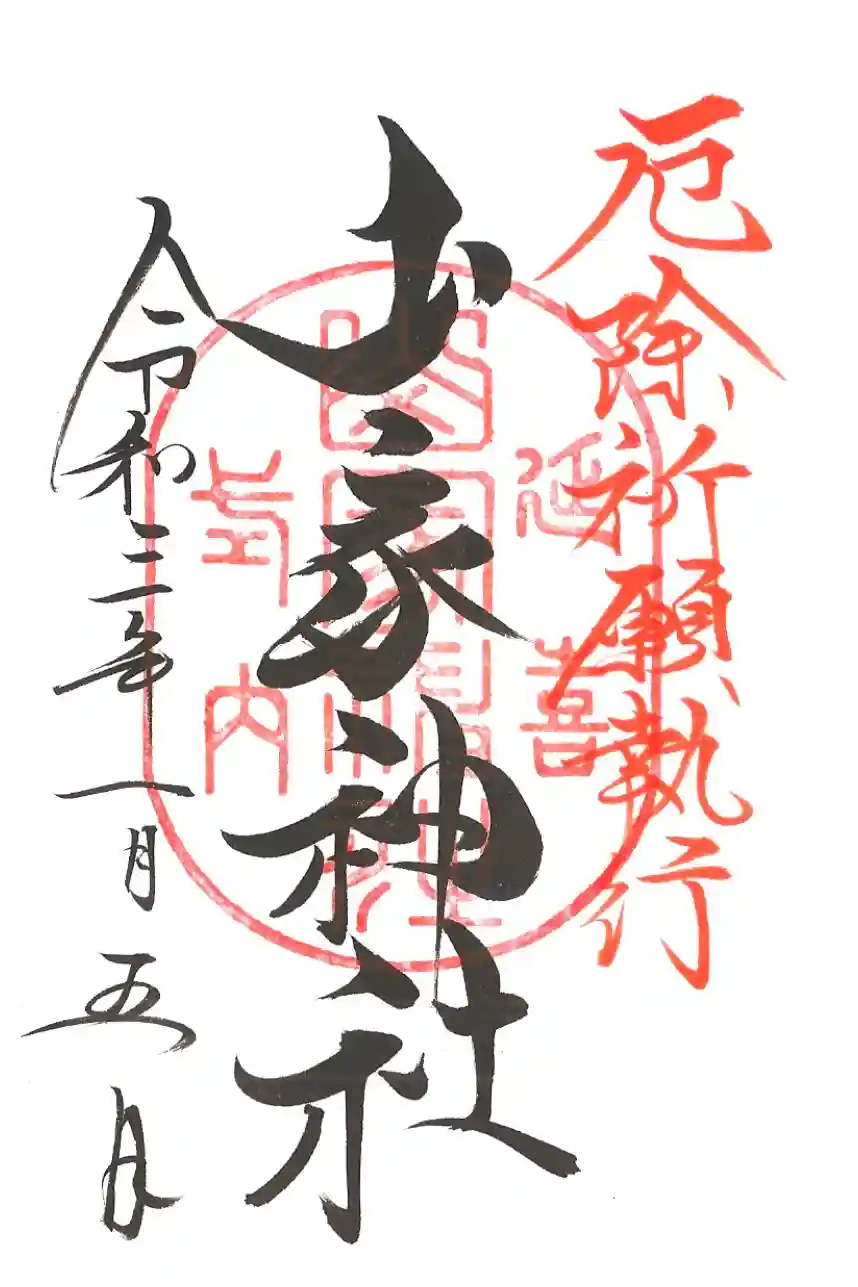 厄除祈願執行
山家神社
令和三年一月五日
延喜
山家神社
式内